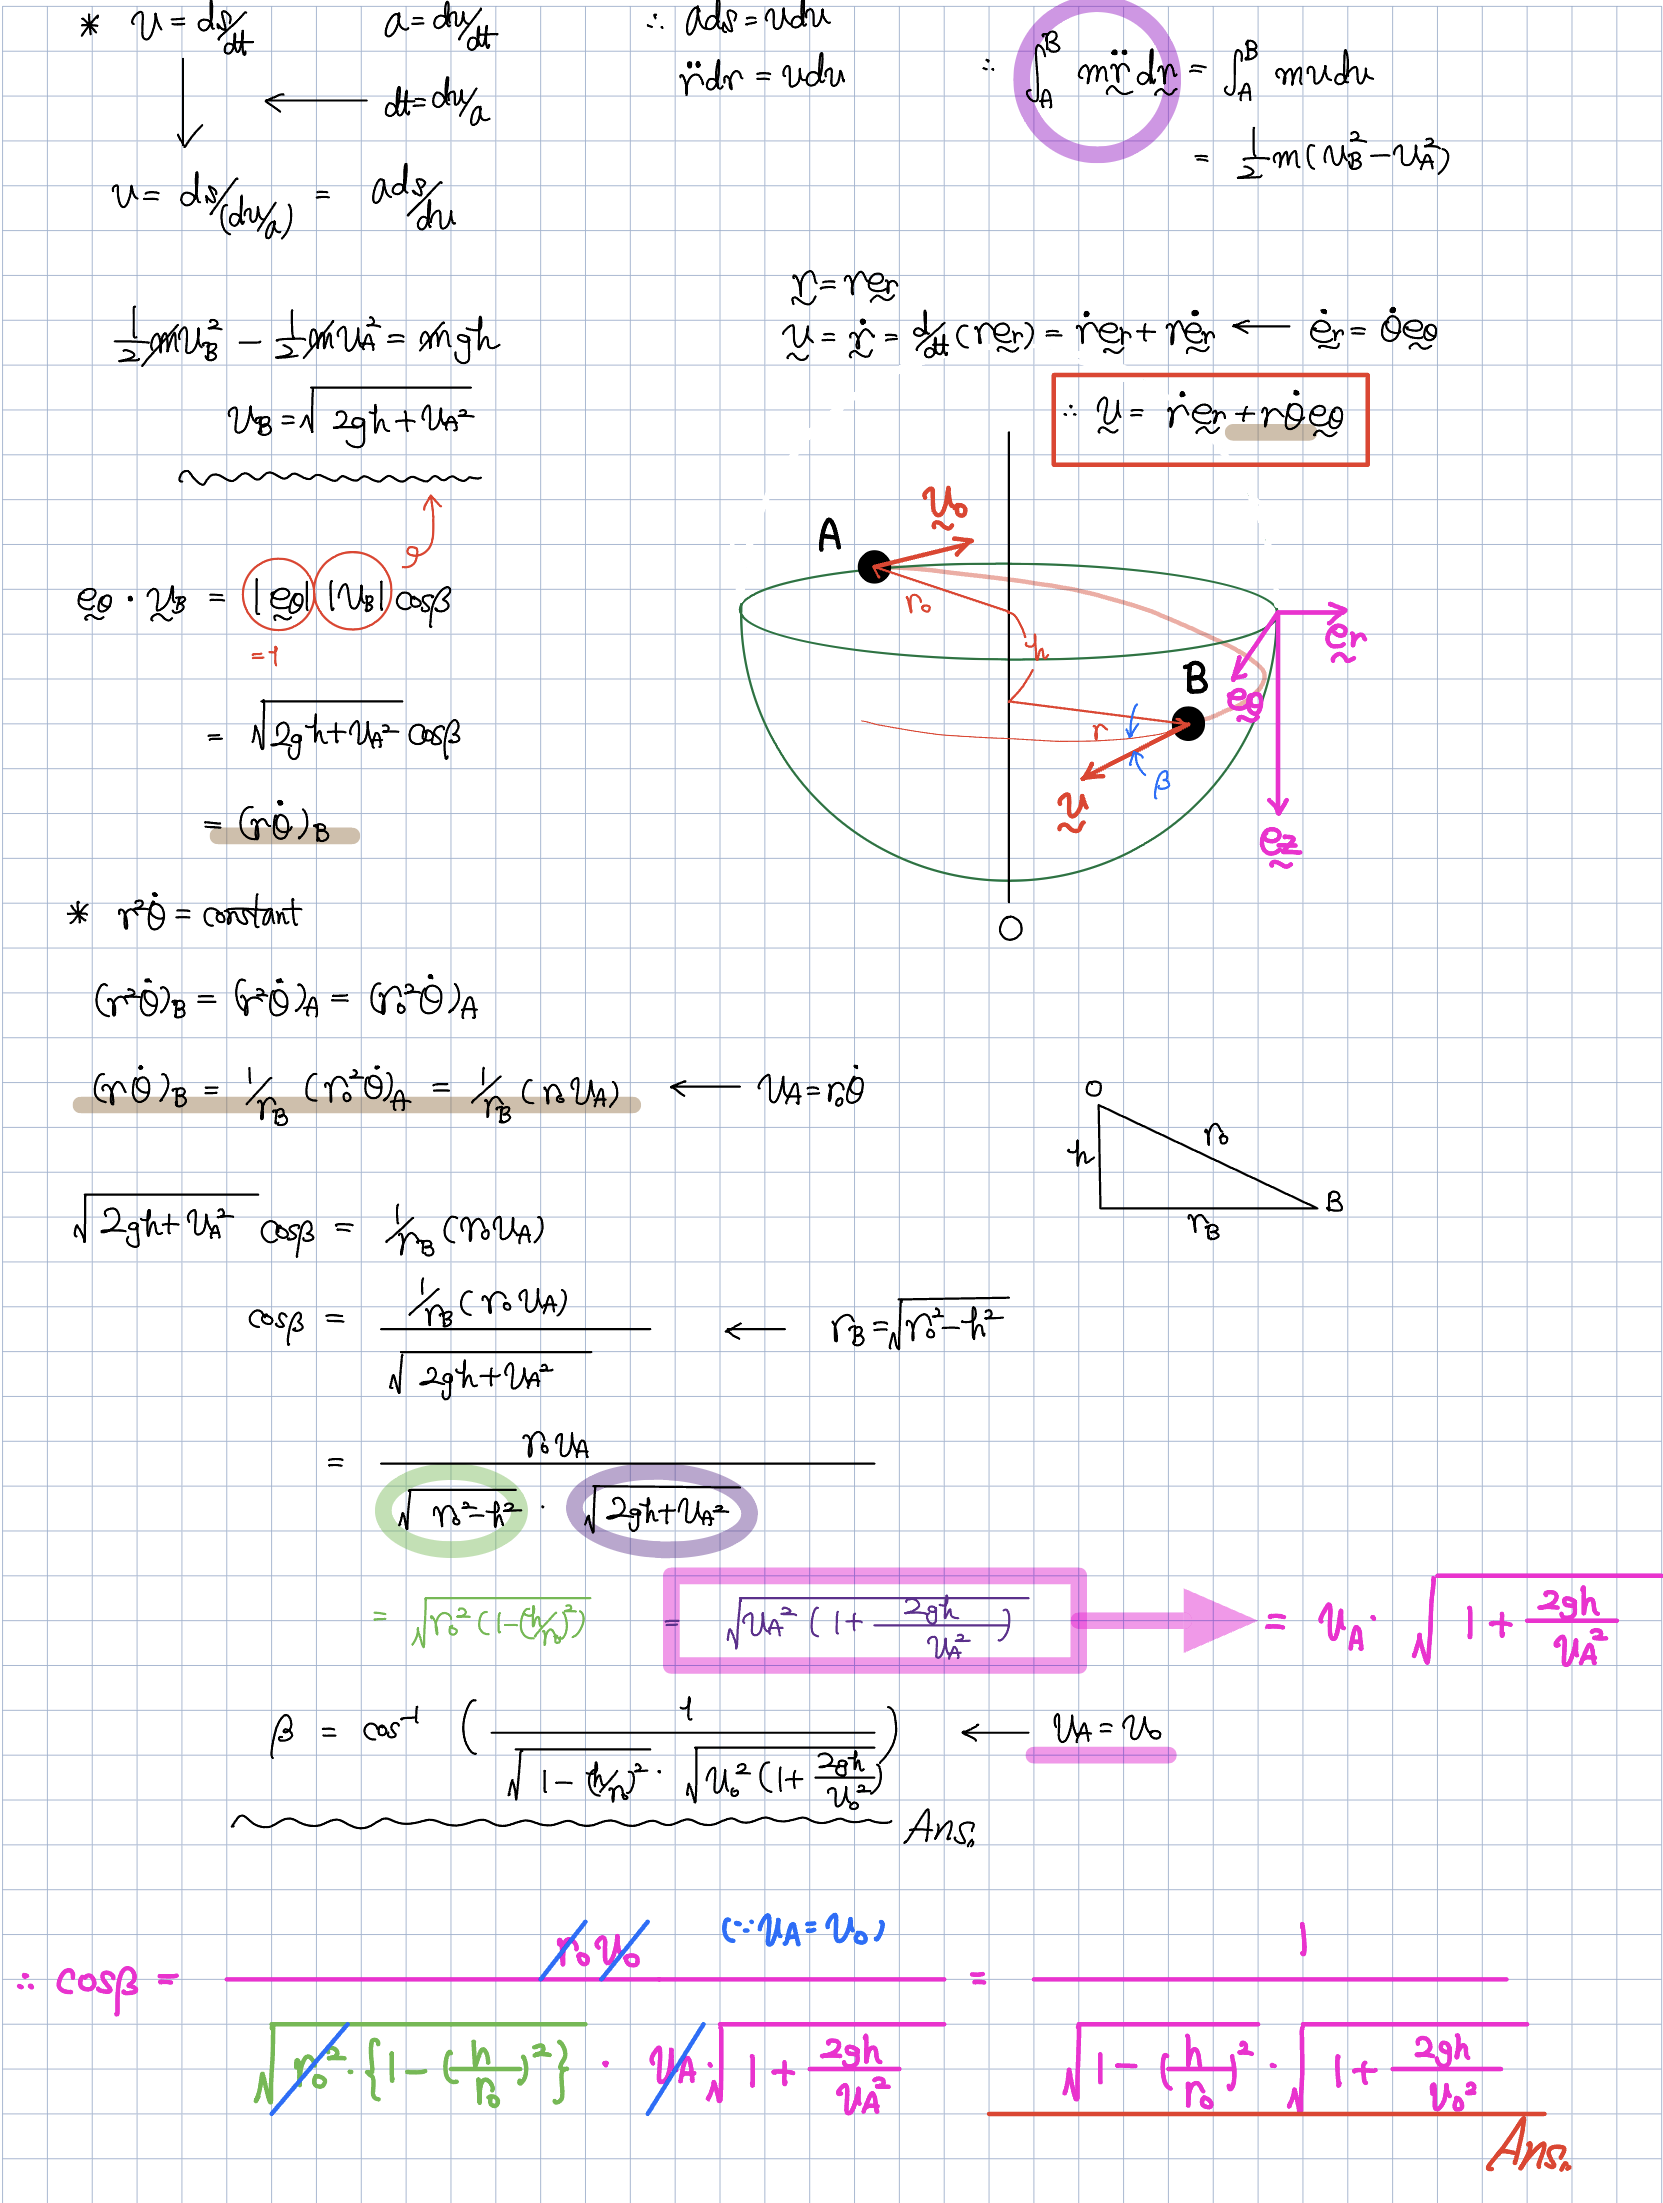 * v = ds/dt   a = dv/dt   ∴ ads = vdv
r̈dr = vdv   ∴ ∫_A^B m r̈ dr = ∫_A^B mvdv
dt = dv/a
= 1/2 m(v_B² − v_A²)
v = ds/(dv/a) = ads/dv
r = re_r
1/2 mv_B² − 1/2 mv_A² = mgh
v = ṙ = d/dt(re_r) = ṙe_r + rė_r ← ė_r = θ̇e_θ
v_B = √(2gh + v_A²)
∴ v = ṙe_r + rθ̇e_θ
A
v₀
r₀
h
B
r
β
v
e_r
e_θ
e_z
O
e_θ · v_B = |e_θ| |v_B| cosβ
=1
= √(2gh + v_A²) cosβ
= (rθ̇)_B
* r²θ̇ = constant
(r²θ̇)_B = (r²θ̇)_A = (r₀²θ̇)_A
(rθ̇)_B = 1/r_B (r₀²θ̇)_A = 1/r_B (r₀v_A) ← v_A = r₀θ̇
O
h
r₀
r_B
B
√(2gh + v_A²) cosβ = 1/r_B (r₀v_A)
cosβ = 1/r_B (r₀v_A) / √(2gh + v_A²) ← r_B = √(r₀² − h²)
= r₀v_A / √(r₀² − h²) · √(2gh + v_A²)
= √(r₀²(1 − (h/r₀)²))   = √(v_A²(1 + 2gh/v_A²))   = v_A · √(1 + 2gh/v_A²)
β = cos⁻¹ (1 / √(1 − (h/r₀)²) · √(v₀²(1 + 2gh/v₀²))) ← v_A = v₀
Ans.
(∵ v_A = v₀)
∴ cosβ = r₀v₀ / √(r₀² · {1 − (h/r₀)²}) · v_A · √(1 + 2gh/v_A²) = 1 / √(1 − (h/r₀)²) · √(1 + 2gh/v₀²)
Ans.